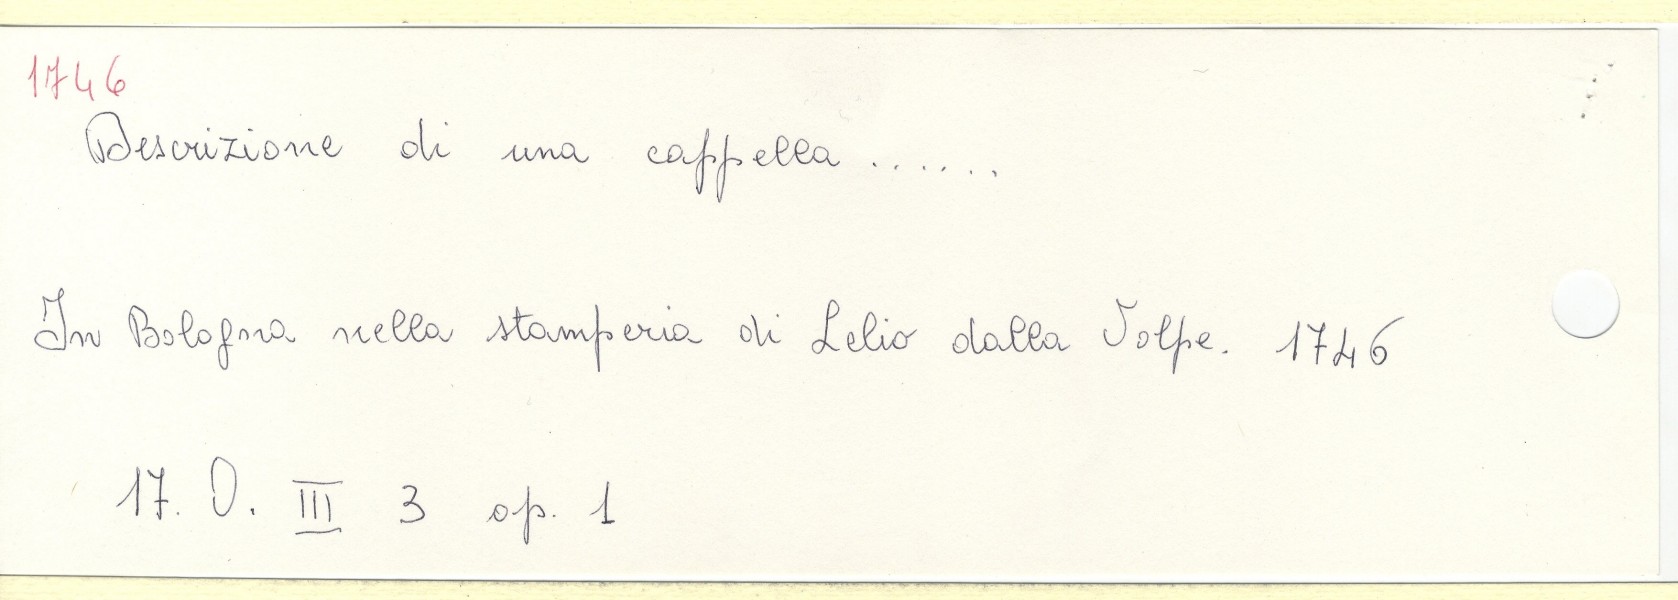 1746
Descrizione di una cappella .......
In Bologna nella stamperia di Lelio dalla Volpe. 1746
17. O. III 3 op. 1